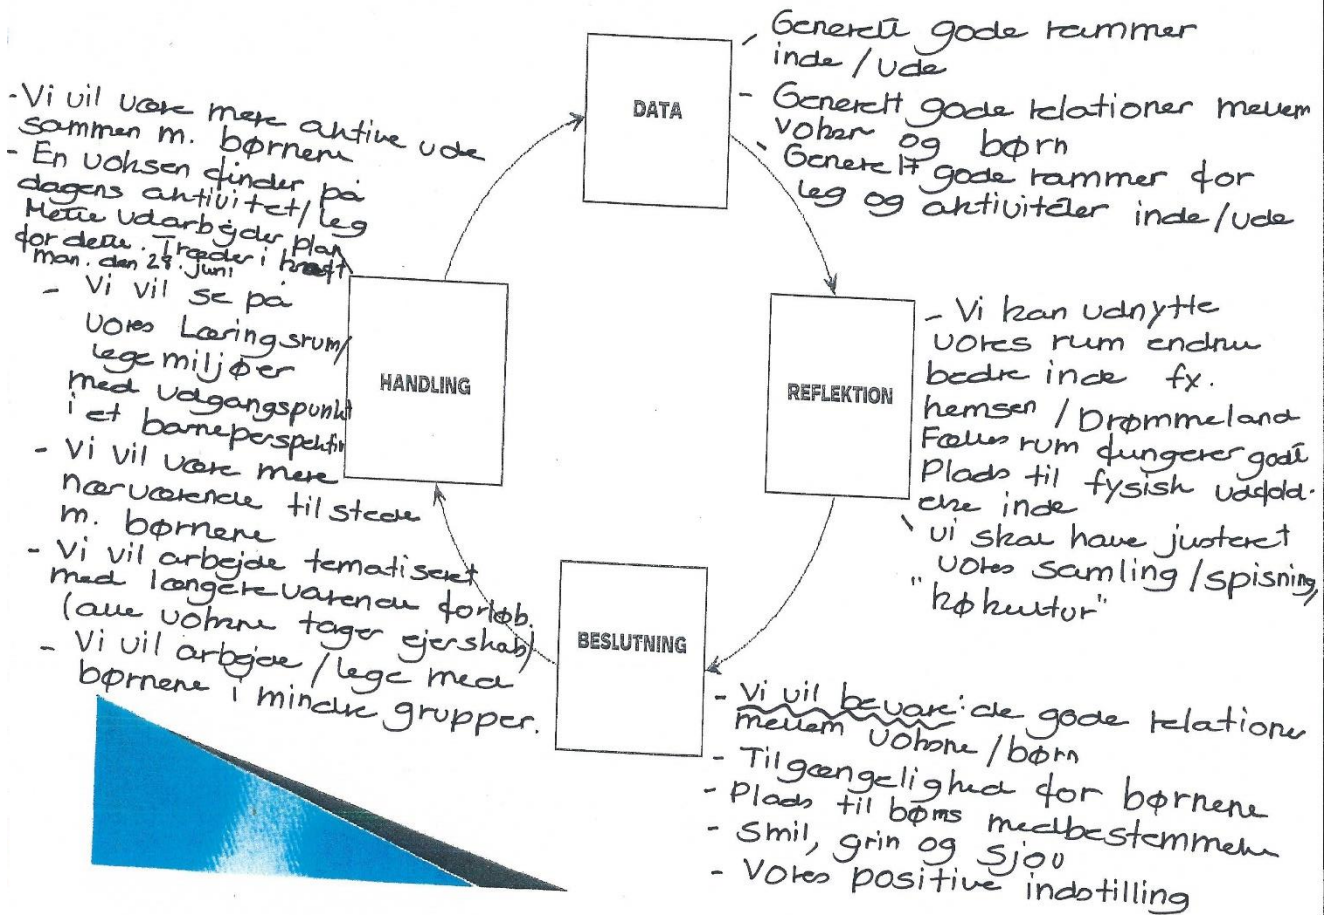 DATA
Generelt gode rammer
inde / ude
- Generelt gode relationer mellem
voksen og børn
- Generelt gode rammer for
leg og aktiviteter inde/ude
REFLEKTION
- Vi kan udnytte
vores rum endnu
bedre inde fx.
hemsen / Drømmeland
Fælles rum fungerer godt
Plads til fysisk udfold-
else inde
vi skal have justeret
vores samling / spisning,
"køkultur"
BESLUTNING
- Vi vil bevare: de gode relationer
mellem voksne / børn
- Tilgængelighed for børnene
- Plads til børns medbestemmelse
- Smil, grin og sjov
- Vores positive indstilling
HANDLING
- Vi vil være mere aktive ude
sammen m. børnene
- En voksen finder på
dagens aktivitet/leg
Mette udarbejder plan
for dette. Træder i kraft
man. den 29. juni
- Vi vil se på
vores Læringsrum/
legemiljøer
med udgangspunkt
i et barneperspektiv
- Vi vil være mere
nærværende tilstede
m. børnene
- Vi vil arbejde tematiseret
med længerevarende forløb.
(alle voksne tager ejerskab)
- Vi vil arbejde / lege med
børnene i mindre grupper.